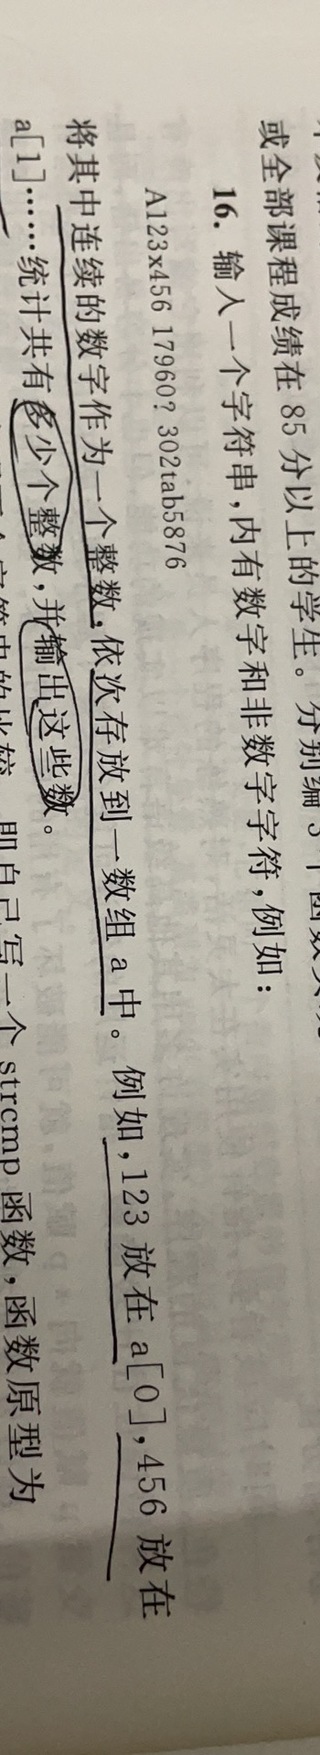 或全部课程成绩在 85 分以上的学生。分别编 3 个函数实现
16. 输入一个字符串,内有数字和非数字字符,例如:
A123x456 17960? 302tab5876
将其中连续的数字作为一个整数,依次存放到一数组 a 中。例如,123 放在 a[0],456 放在
a[1]……统计共有多少个整数,并输出这些数。
个字符串的比较,即自己写一个 strcmp 函数,函数原型为